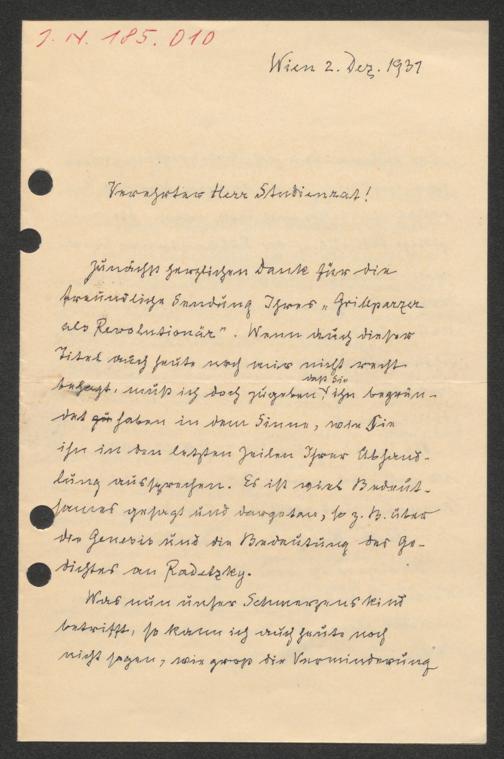 J. N. 185.010
Wien 2. Dez. 1931
Verehrter Herr Studienrat!
Zunächst herzlichen Dank für die
freundliche Sendung Ihres „Grillparzer
als Revolutionär". Wenn auch dieser
Titel auch heute noch mir nicht recht
behagt, muß ich doch zugeben, daß Sie ihn begrün-
det zu haben in dem Sinne, wie Sie
ihn in den letzten Zeilen Ihrer Abhand-
lung aussprechen. Es ist viel Bedeut-
sames gesagt und dargetan, so z. B. über
die Genesis und die Bedeutung des Ge-
dichtes an Radetzky.
Was nun unser Schmerzenskind
betrifft, so kann ich auch heute noch
nicht sagen, wie groß die Verminderung